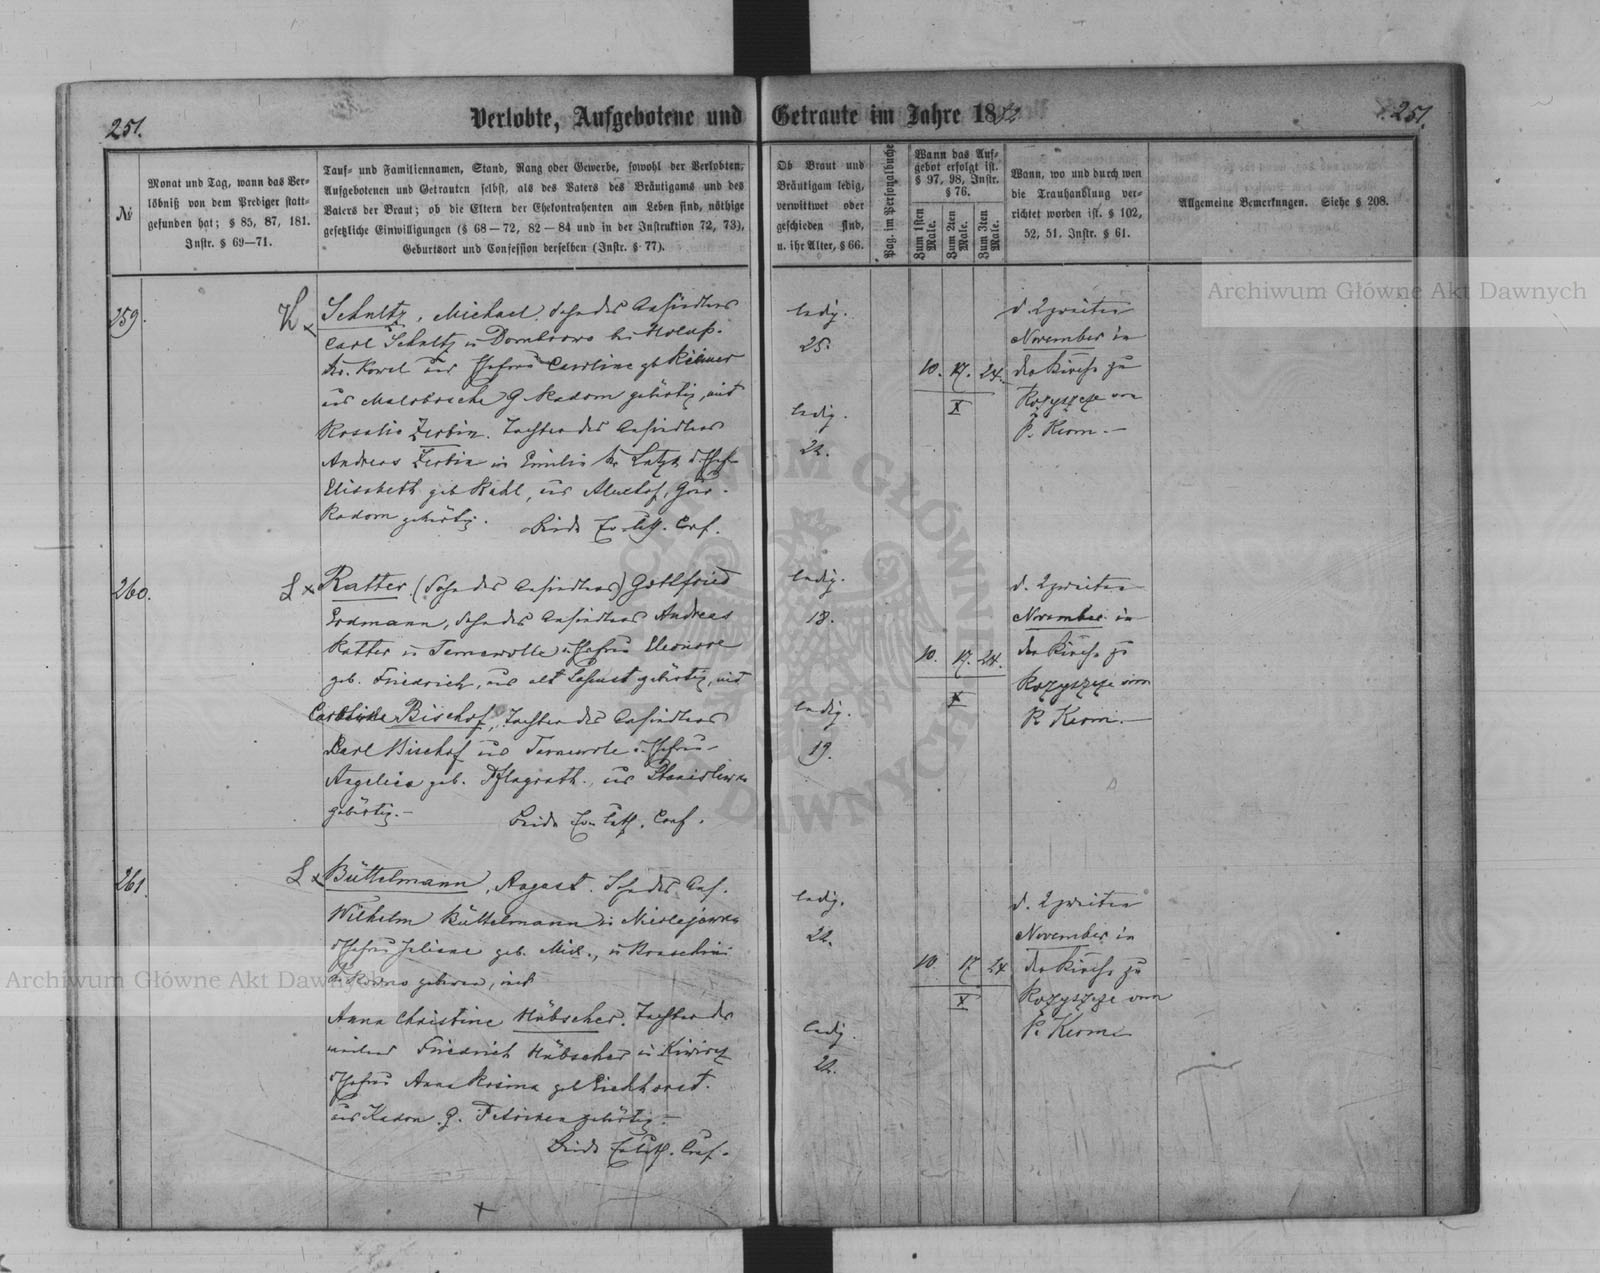 251.
Verlobte, Aufgebotene und Getraute im Jahre 1882
251.
№
Monat und Tag, wann das Ver-
löbniß von dem Prediger statt-
gefunden hat; § 85, 87, 181.
Instr. § 69—71.
Tauf- und Familiennamen, Stand, Rang oder Gewerbe, sowohl der Verlobten,
Aufgebotenen und Getrauten selbst, als des Vaters des Bräutigams und des
Vaters der Braut; ob die Eltern der Ehekontrahenten am Leben sind, nöthige
gesetzliche Einwilligungen (§ 68—72, 82—84 und in der Instruktion 72, 73),
Geburtsort und Confession derselben (Instr. § 77).
Ob Braut und
Bräutigam ledig,
verwittwet oder
geschieden sind,
u. ihr Alter, § 66.
Pag. im Personalbuche
Wann das Auf-
gebot erfolgt ist.
§ 97, 98, Instr.
§ 76.
Zum 1sten Male.
Zum 2ten Male.
Zum 3ten Male.
Wann, wo und durch wen
die Trauhandlung ver-
richtet worden ist. § 102,
52, 51. Instr. § 61.
Allgemeine Bemerkungen. Siehe § 208.
259.
Schultz, Michael. Sohn des Ansiedlers
Carl Schultz in Dombrowo bei
Kr. Kowel und Ehefrau Caroline geb.
aus G. Radom gebürtig, mit
Rosalie Zerbin. Tochter des Ansiedlers
Andreas Zerbin in Emilin Kr. Lutzk d. Ehefr.
Elisabeth geb. Kahl, aus Gouv.
Radom gebürtig. Beide Ev. Luth. Conf.
ledig.
25.
ledig.
22.
10. 17. 24.
X
d. 2 zweiten
November in
der Kirche zu
Rozyszcze von
P. Kerm.—
260.
Ratter (Sohn des Ansiedlers) Gottfried
Erdmann, Sohn des Ansiedlers Andreas
Ratter in Ternewolle u. Ehefrau Eleonore
geb. Friedrich, aus alt gebürtig, mit
Bischof, Tochter des Ansiedlers
Carl Bischof aus u. Ehefrau
Angelica geb. Pflagrath., aus
gebürtig.— Beide Ev. Luth. Conf.
ledig.
18.
ledig.
19.
10. 17. 24.
X
d. 2 zweiten
November in
der Kirche zu
Rozyszcze vom
P. Kerm.—
261.
Büttelmann, August. Sohn des Ans.
Wilhelm Büttelmann in
Ehefrau Juliane geb.
geboren, mit
Anna Christine Hübscher. Tochter des
Friedrich Hübscher in
Ehefrau Anna Rosina geb. Eichhorst.
aus Radom G. gebürtig.—
Beide Ev. Luth. Conf.
ledig.
22.
ledig.
22.
10. 17. 24.
X
d. 2 zweiten
November in
der Kirche zu
Rozyszcze vom
P. Kerm
Archiwum Główne Akt Dawnych
Archiwum Główne Akt Dawnych
ARCHIWUM GŁÓWNE AKT DAWNYCH